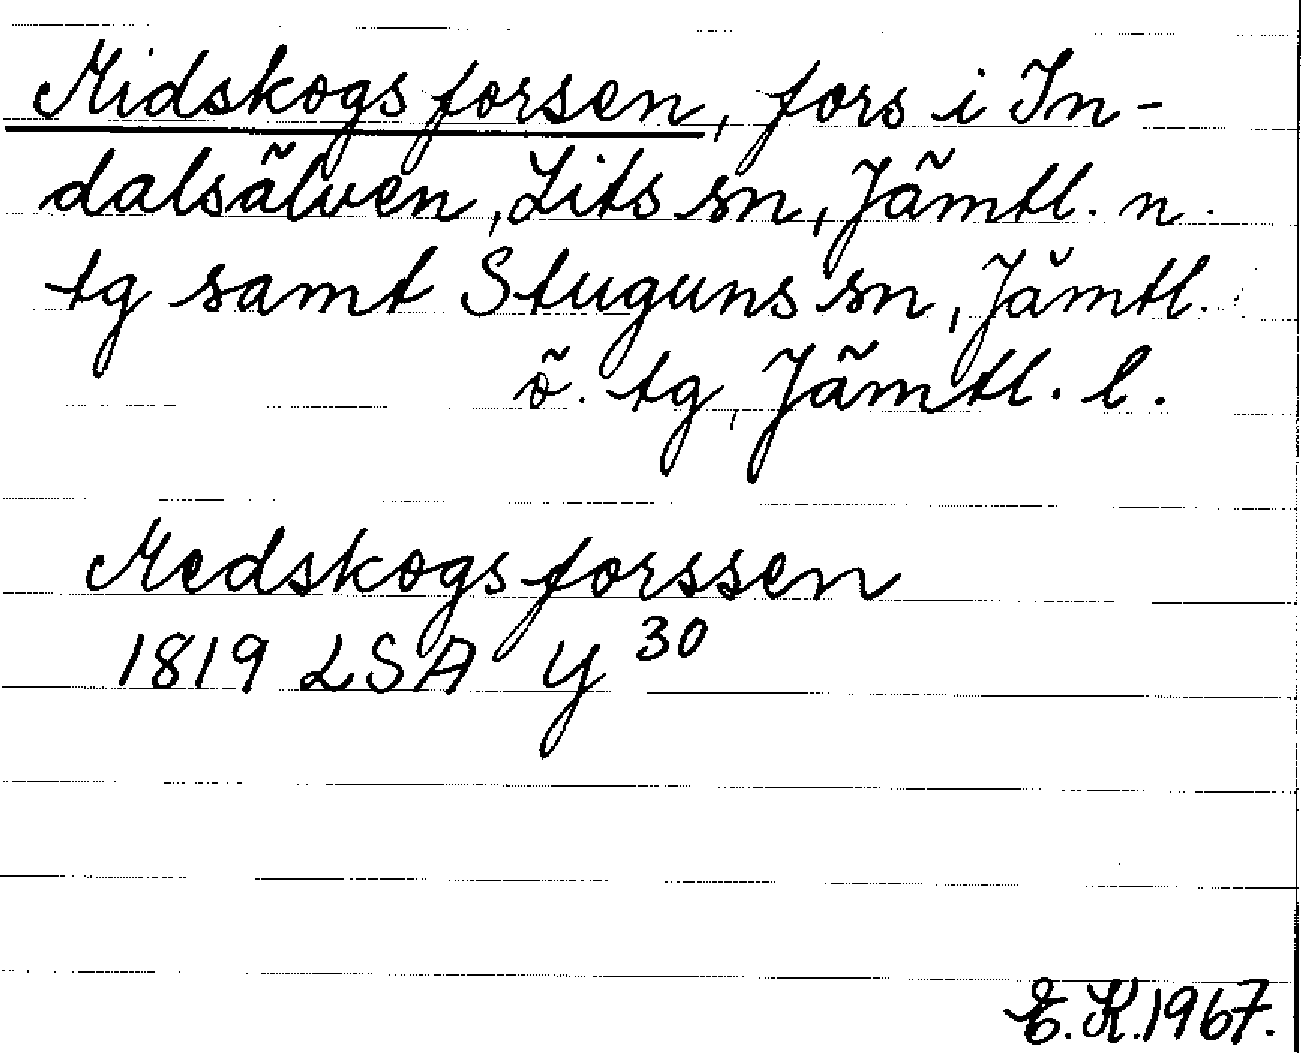 Midskogsforsen, fors i In-
dalsälven, Lits sn, Jämtl. n.
tg samt Stuguns sn, Jämtl.
ö. tg, Jämtl. l.
Medskogsforssen
1819 LSA Y 30
E.K. 1967.